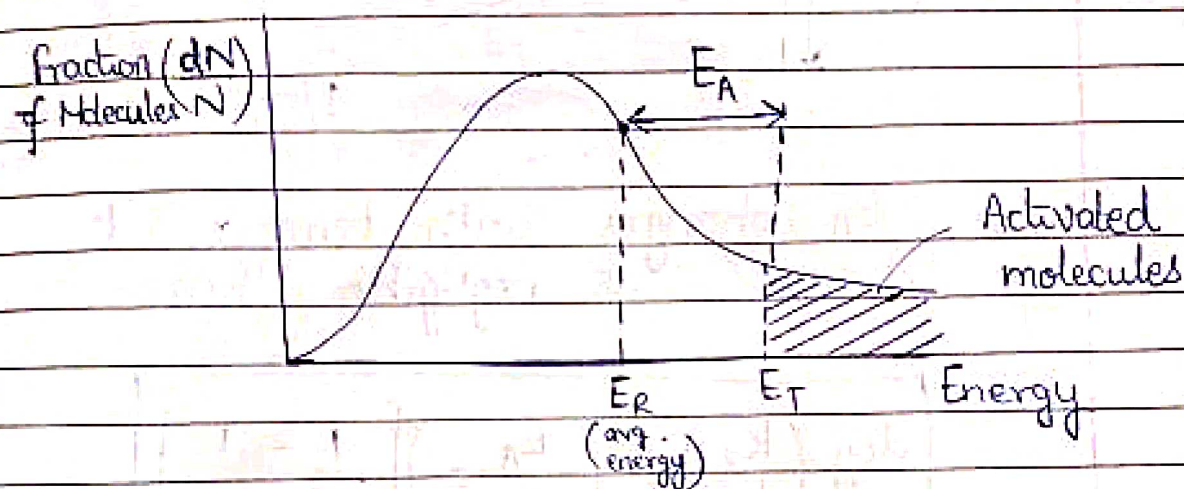 fraction (dN/N)
of Molecules
E_A
Activated
molecules
E_R
(avg. energy)
E_T
Energy